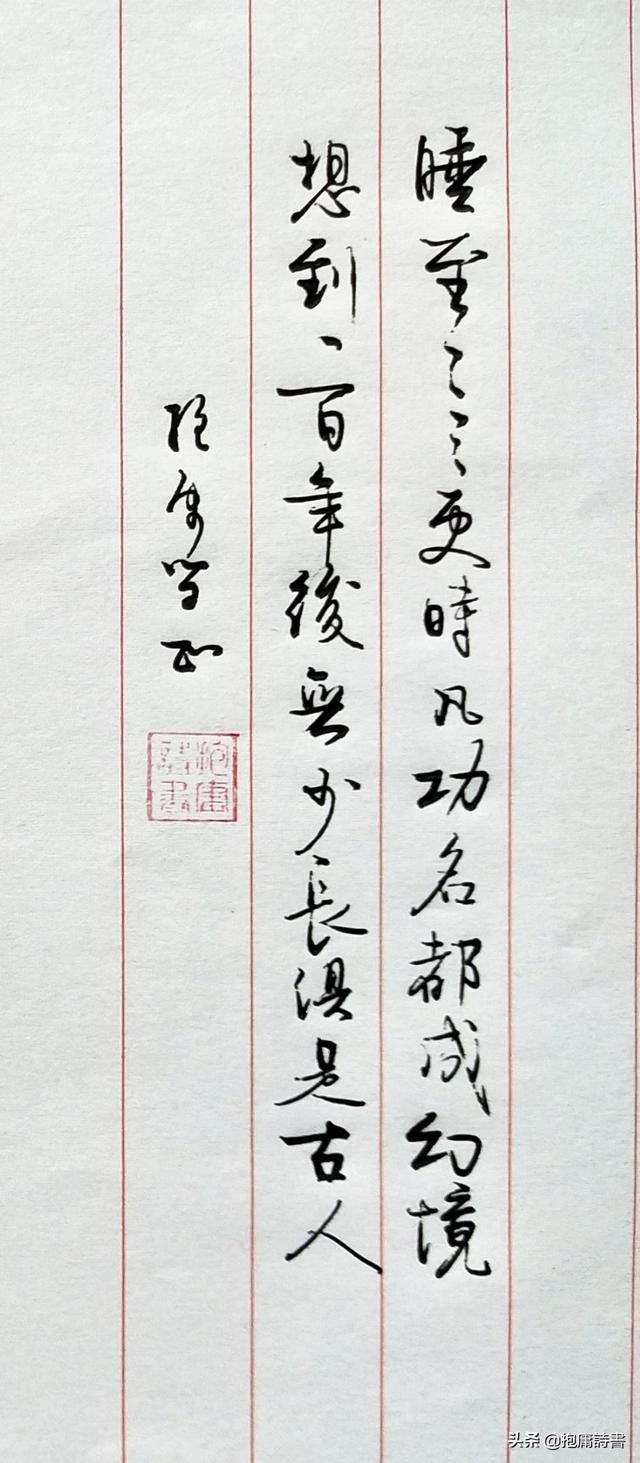 睡至二三更時凡功名都成幻境
想到一百年後無少長俱是古人
抱庸
詩書
头条 @抱庸詩書